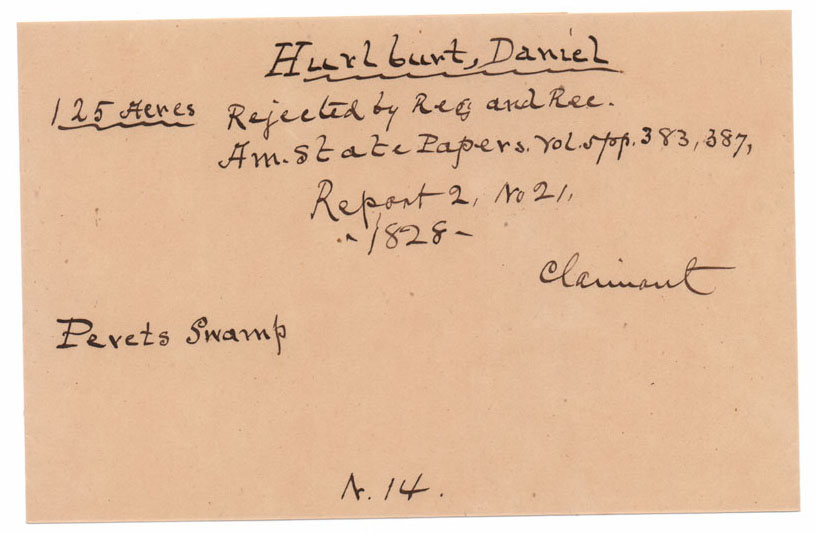 Hurlburt, Daniel
125 Acres Rejected by Reg and Rec.
Am. State Papers. Vol. 5 pp. 383, 387,
Report 2, No 21,
- 1828 -
Claimant
Perets Swamp
N. 14.